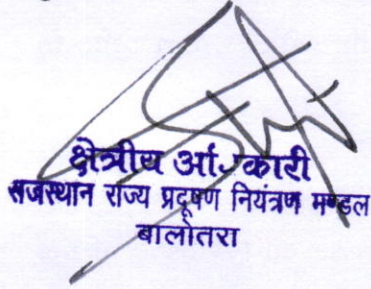 क्षेत्रीय
राजस्थान राज्य प्रदूषण नियंत्रण मण्डल
बालोतरा